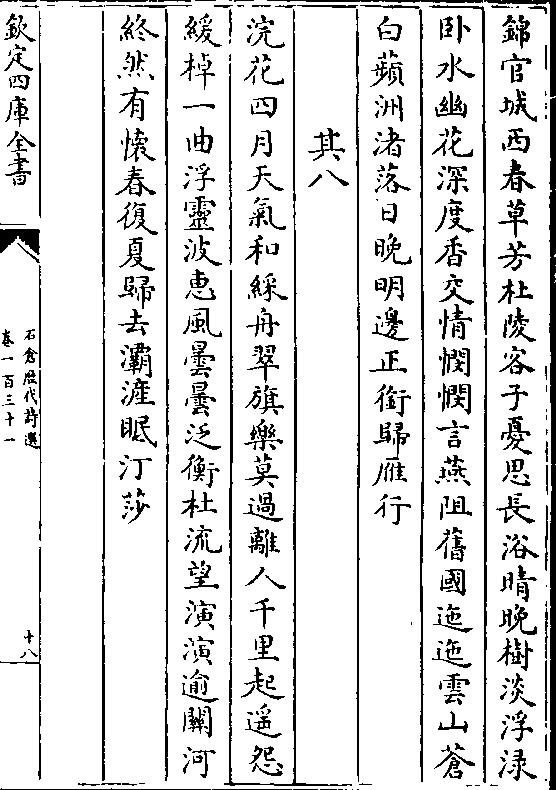 錦官城西春草芳杜陵客子憂思長浴晴晚樹淡浮渌
卧水幽花深度香交情憫憫言燕阻舊國迤迤雲山蒼
白蘋洲渚落日晚明邊正銜歸雁行
其八
浣花四月天氣和綵舟翠旗樂莫過離人千里起遥怨
緩棹一曲浮靈波惠風曇曇泛衡杜流望演演逾關河
終然有懷春復夏歸去灞滻眠汀莎
欽定四庫全書
石倉歷代詩選
卷一百三十一
十八